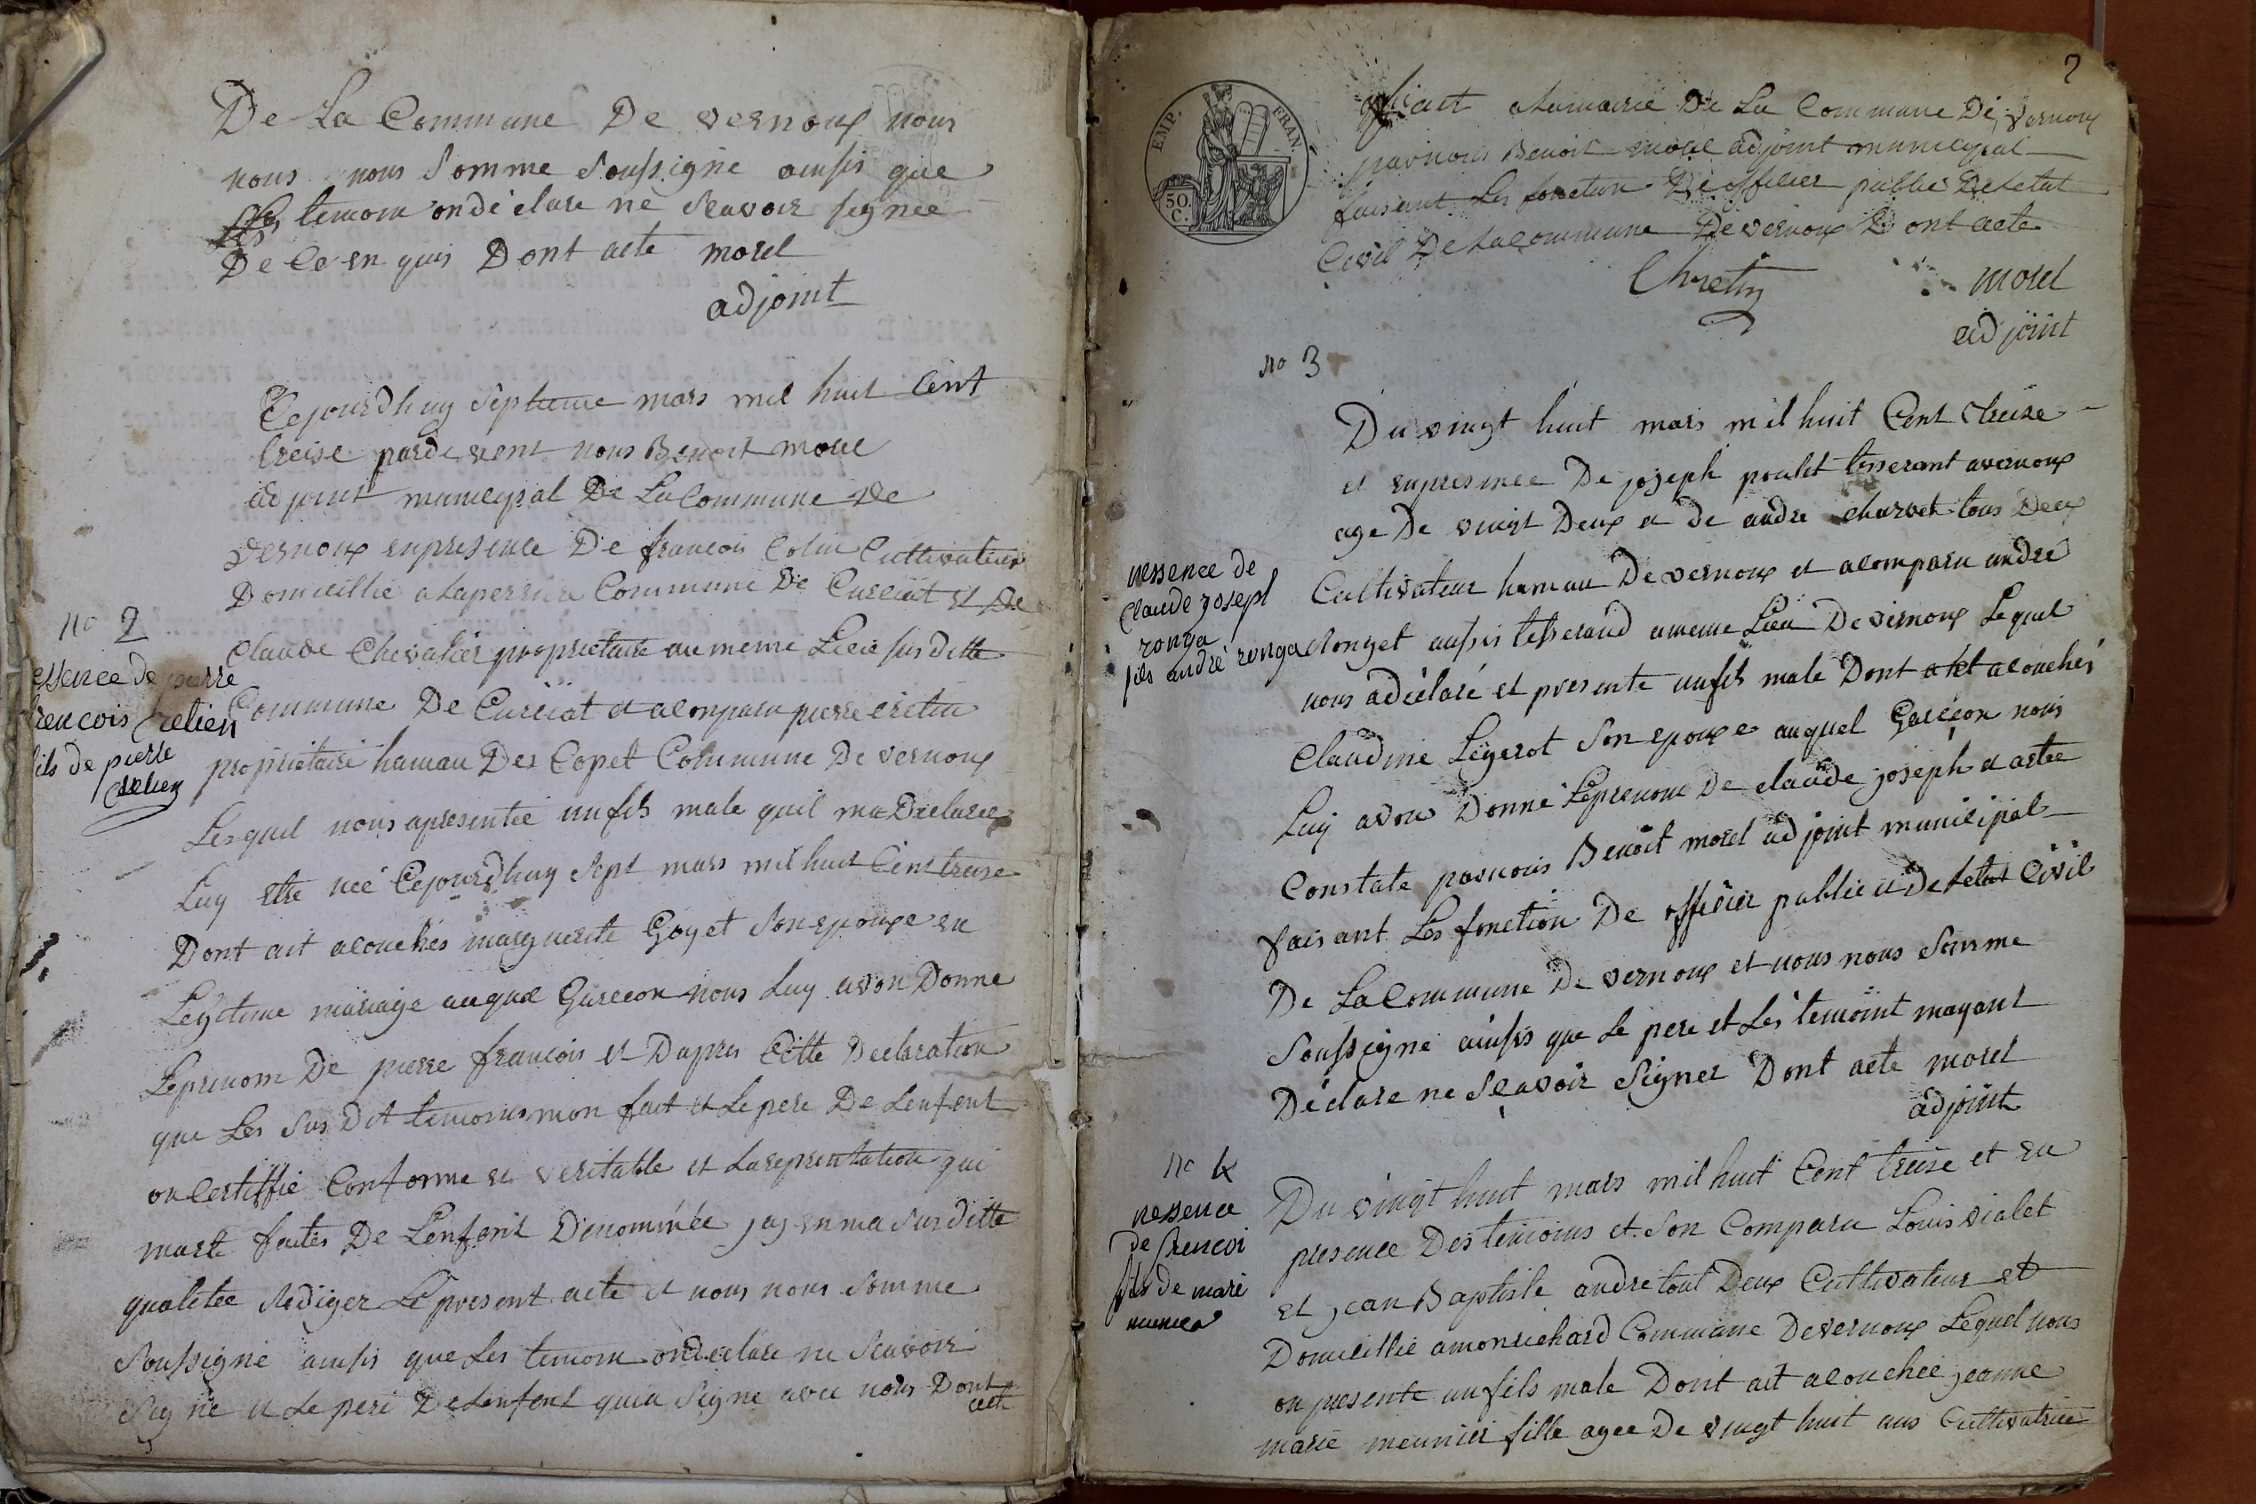 De La Commune De vernoux nous
nous nous Somme Soussigne ainsis que
Les temoin on déclare nè Scavoir signee
De Ce en quis Dont acte morel
adjoint
Cejourdhuy septieme mars mil huit Cent
treise pardevent nous Benoit morel
adjoint municipal De La Commune De
vernoux enpresence De francois Colin Cultivateur
Domicillie a Commune De Curciat et De
Claude Chevalier proprietaire au meme Lieu sus ditte
Commune De Curciat et a Comparu pierre cretin
proprietaire hamau Des Copet Commune De vernoux
Lesquel nous apresentée un fils male quil ma Déclarée
Luy Etre neé Cejourdhuy Sept mars mil huit Cent treise
Dont ait acouchés marguerite Goyet Son epouxe en
Legitime mariage auquel Garccon nous Luy avon Donne
Leprenom De pierre francois et Dapres Cette Declaration
que Les Sus Dit temoins mon fait et Le pere De Lenfent
on Certiffie Conforme et veritable et La representation qui
mait faites De Lenfent Dénommée jay en ma Sus ditte
qualitee Rediger Le present acte et nous nous Somme
Soussigne ainsis que Les temoin on declare ne Scavoir
Sigñe et Le pere De Lenfent quia Signe avec nous Dont
acte
no 2
essence de pierre
francois cretien
fils de pierre
cretien
2
EMP. FRAN.
50.
C.
fait a Lamairie De La Commune De vernoux
par nous Benoit morel adjoint municipal
faisant Les fonction De officier public De Letat
Civil De La Commune De vernoux Dont acte
Chretin morel
adjoint
no 3
Du vingt huit mars mil huit Cent treise
et enpresence De joseph poulet tisserant a vernoux
age De vingt Deux et de andre charvet tous Deux
Cultivateur hamau De vernoux et a Comparu andre
Ronget aussis tesserand a meme Lieu De vernoux Lequel
nous a déclaré et presente un fils male Dont a et acouchés
Claudine Legerot Son epouxe auquel Garccon nous
Luy avon Donné Leprenom De claude joseph et actee
Constate par nous Benoit morel adjoint municipal
faisant Les fonction De officier public et De Letat Civil
De La Commune De vernoux et nous nous Somme
Soussigne ainsis que Le pere et Les temoint mayant
Declare ne Scavoir Signer Dont acte morel
adjoint
nessence de
Claude josepl
ronga
fils andré ronga
no 4
nessence
de frencoi
fils de marie
munier
Du vingt huit mars mil huit Cent treise et en
presence Des temoins et Son Comparu Louis vialet
et jean Baptiste andre tout Deux Cultivateur et
Domicillie a monrichard Commune De vernoux Lequel nous
on presente un fils male Dont ait acouchée jeanne
marie meunier fille agee De vingt huit ans Cultivatrice